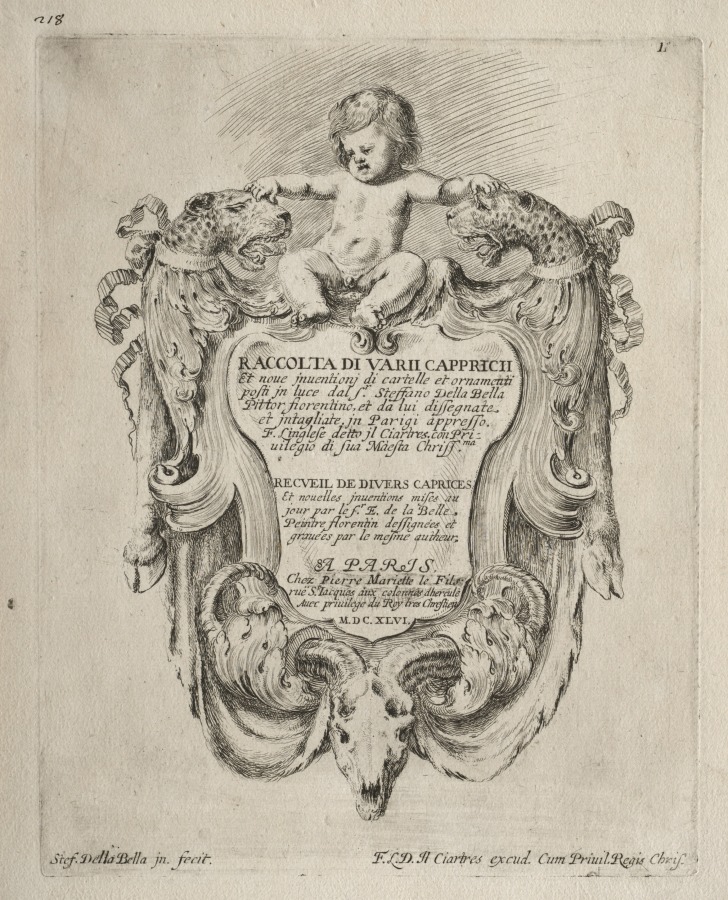 218
L
RACCOLTA DI VARII CAPPRICII
Et noue jnuentionj di cartelle et ornamenti
posti jn luce dal s.r Steffano Della Bella
Pittor fiorentino, et da lui dissegnate,
et jntagliate, jn Parigi appresso,
F. Linglese detto jl Ciartres, con Pri-
uilegio di sua Maesta Chriss.ma
RECVEIL DE DIVERS CAPRICES
Et nouelles jnuentions mises au
jour par le s.r E. de la Belle,
Peintre florentin dessignées et
grauées par le mesme autheur,
A PARIS.
Chez Pierre Mariette le Fils
rue S. Iacques aux colonnes dhercule
Auec priuilege du Roy tres Chrestien
M. DC. XLVI.
Stef. Della Bella jn. fecit.
F. L. D. Il Ciartres excud. Cum Priuil. Regis Chris.